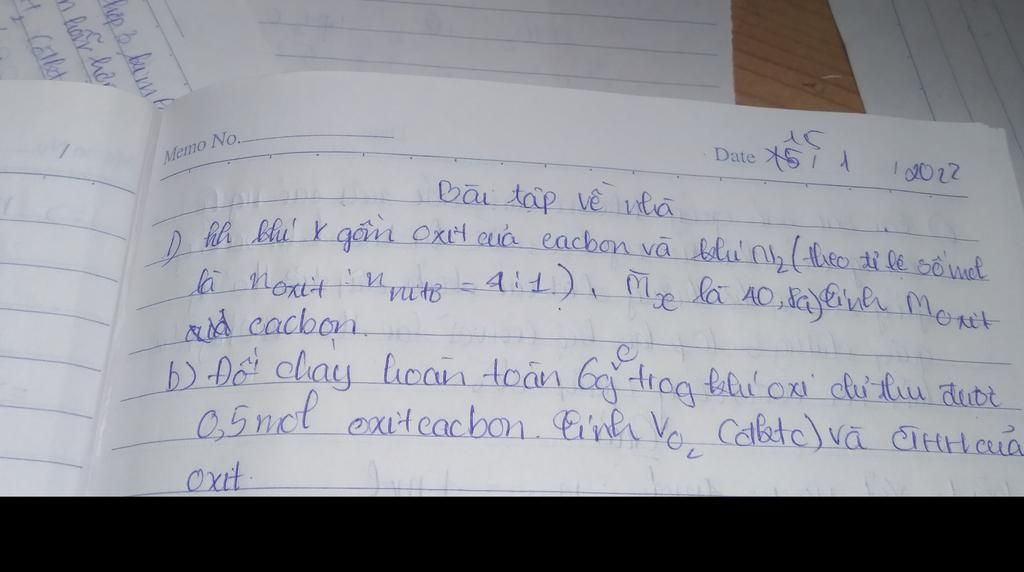 hợp 3 kim
n hỗn hô
Memo No.
Date 15 / 1 / 2022
Bài tập về nhà
1) hh khí X gồm oxit của cacbon và khí N2 (theo tỉ lệ số mol
là n oxit : n nitơ = 4:1), M̄x là 40,8 a) tính M oxit
cacbon.
b) Đốt cháy hoàn toàn 6g C trog khí oxi dư thu được
0,5 mol oxit cacbon. Tính VO2 (đktc) và CTHH của
oxit.